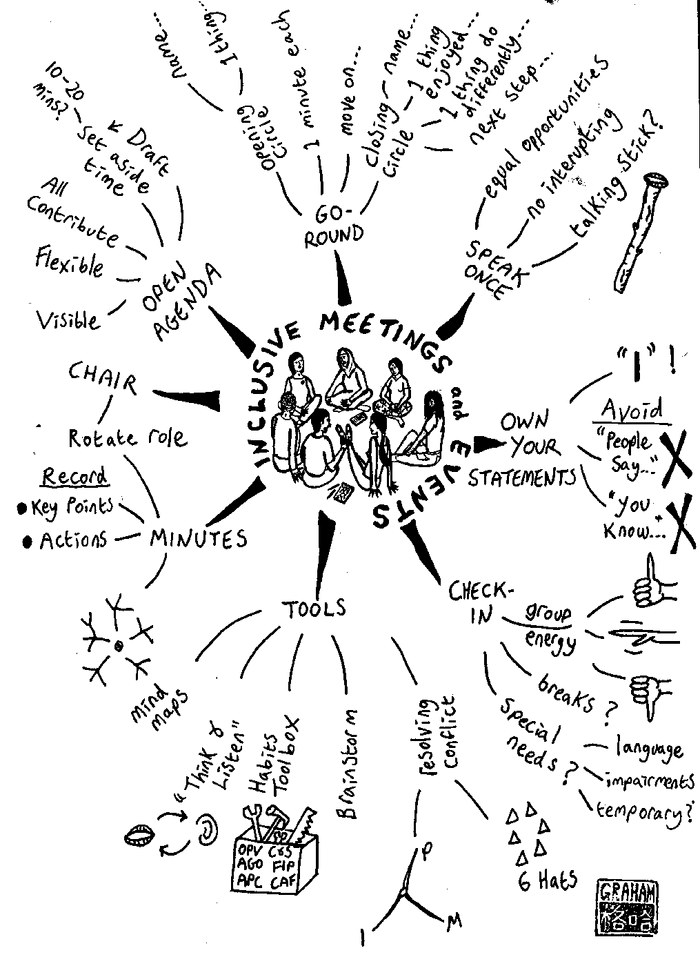 INCLUSIVE MEETINGS and EVENTS
GO-
ROUND
Opening
Circle
name...
1 thing...
1 minute each
move on...
closing
Circle
name...
1 thing
enjoyed...
1 thing do
differently...
next step...
SPEAK
ONCE
equal opportunities
no interupting
talking stick?
OWN
YOUR
STATEMENTS
"I" !
Avoid
"People
Say..."
"you
Know..."
CHECK-
IN
group
energy
breaks ?
Special
needs ?
language
impairments
temporary?
TOOLS
resolving
Conflict
P
I
M
6 Hats
Brainstorm
Habits
Toolbox
OPV C&S
AGO FIP
APC CAF
"Think &
Listen"
mind
maps
MINUTES
Record
Key Points
Actions
CHAIR
Rotate role
OPEN
AGENDA
Draft
Set aside
time
10-20
mins?
All
Contribute
Flexible
Visible
GRAHAM
格哈